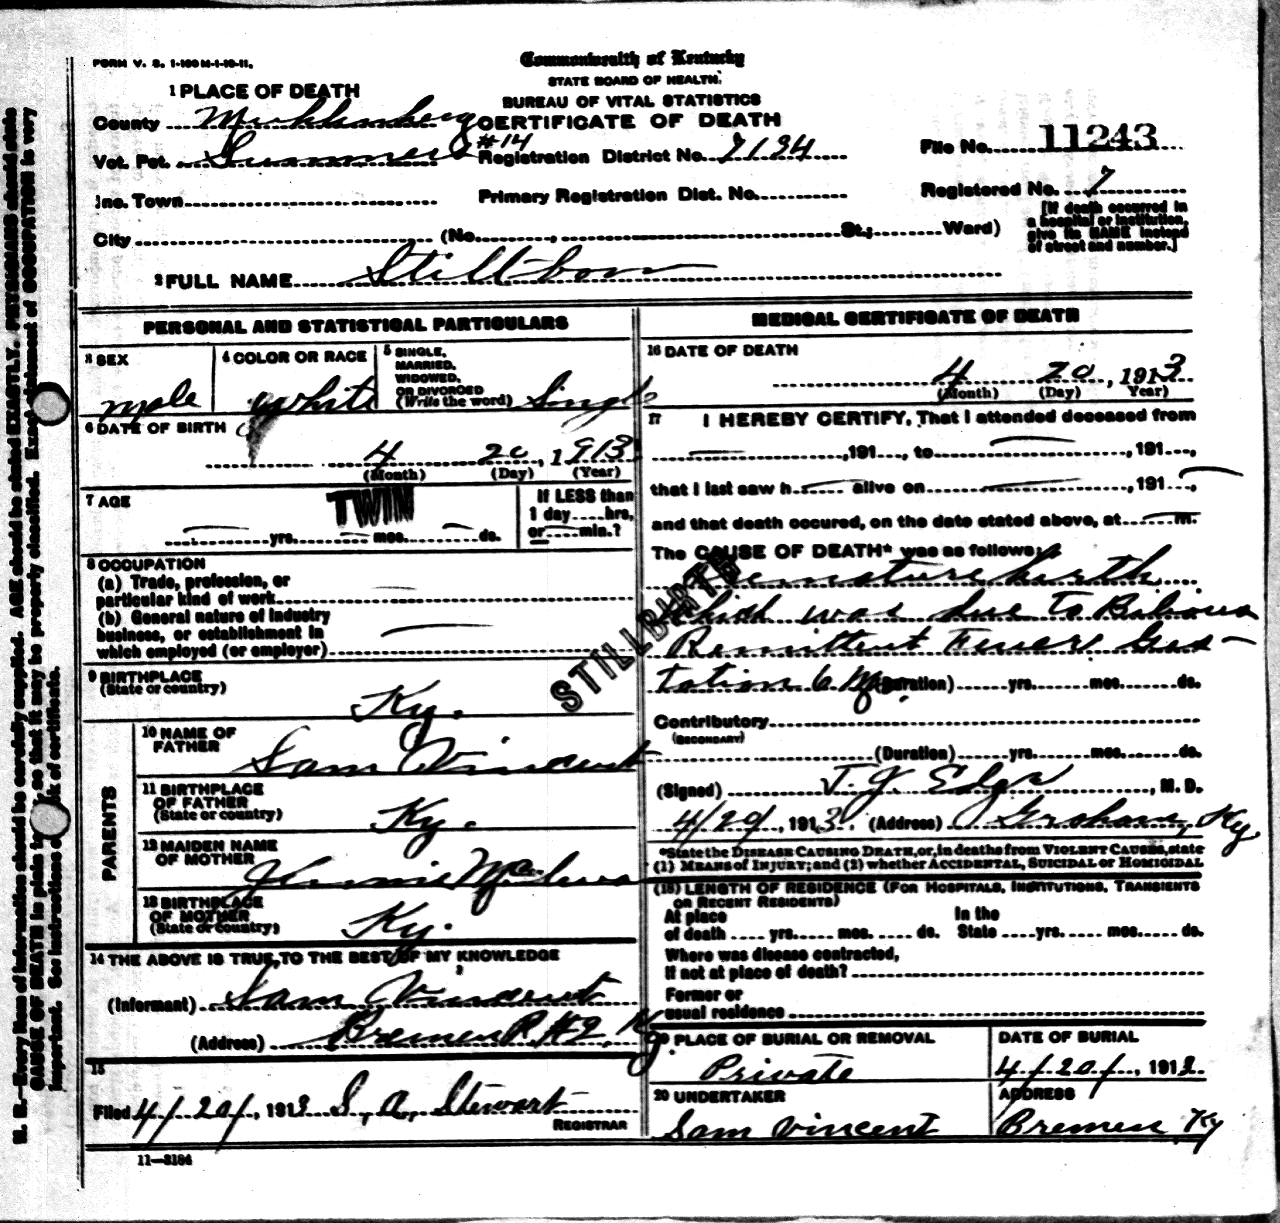 FORM V. S. 1-100 M-1-10-11.
Commonwealth of Kentucky
STATE BOARD OF HEALTH.
BUREAU OF VITAL STATISTICS
CERTIFICATE OF DEATH
1 PLACE OF DEATH
County
Vot. Pct. #14
Registration District No.
File No. 11243
Inc. Town
Primary Registration Dist. No.
Registered No. 7
[If death occurred in
a hospital or institution,
give its NAME instead
of street and number.]
City (No. , St.; Ward)
2 FULL NAME Stillborn
PERSONAL AND STATISTICAL PARTICULARS
3 SEX
Male
4 COLOR OR RACE
White
5 SINGLE,
MARRIED,
WIDOWED,
OR DIVORCED
(Write the word) Single
6 DATE OF BIRTH
4 20, 1913
(Month) (Day) (Year)
7 AGE
TWIN
yrs. mos. ds.
If LESS than
1 day hrs,
or min.?
8 OCCUPATION
(a) Trade, profession, or
particular kind of work
(b) General nature of industry
business, or establishment in
which employed (or employer)
9 BIRTHPLACE
(State or country)
Ky.
PARENTS
10 NAME OF
FATHER
Sam Vincent
11 BIRTHPLACE
OF FATHER
(State or country)
Ky.
12 MAIDEN NAME
OF MOTHER
13 BIRTHPLACE
OF MOTHER
(State or country)
Ky.
14 THE ABOVE IS TRUE TO THE BEST OF MY KNOWLEDGE
(Informant) Sam Vincent
(Address) Bremen R #2, Ky.
15
Filed 4/20/, 1913 S. A. Stewart
REGISTRAR
11—3184
MEDICAL CERTIFICATE OF DEATH
16 DATE OF DEATH
4 20, 1913
(Month) (Day) Year)
17 I HEREBY CERTIFY, That I attended deceased from
, 191 , to , 191 ,
that I last saw h alive on , 191 ,
and that death occured, on the date stated above, at m.
The CAUSE OF DEATH* was as follows:
Premature birth
which was due to Bilious
Remittent Fever Ges-
tation 6 Mo. (Duration) yrs. mos. ds.
STILLBIRTH
Contributory
(SECONDARY)
(Duration) yrs. mos. ds.
(Signed) , M. D.
4/20, 1913. (Address) Graham, Ky
*State the DISEASE CAUSING DEATH, or, in deaths from VIOLENT CAUSES, state
(1) MEANS of INJURY; and (2) whether ACCIDENTAL, SUICIDAL or HOMICIDAL
(18) LENGTH OF RESIDENCE (FOR HOSPITALS, INSTITUTIONS, TRANSIENTS
OR RECENT RESIDENTS)
At place In the
of death yrs. mos. ds. State yrs. mos. ds.
Where was disease contracted,
if not at place of death?
Former or
usual residence
19 PLACE OF BURIAL OR REMOVAL
Private
DATE OF BURIAL
4/20/, 1913.
20 UNDERTAKER
Sam Vincent
ADDRESS
Bremen Ky
N. B.—Every item of information should be carefully supplied. AGE should be stated EXACTLY. PHYSICIANS should state
CAUSE OF DEATH in plain terms, so that it may be properly classified. Exact statement of OCCUPATION is very
important. See instructions on back of certificate.